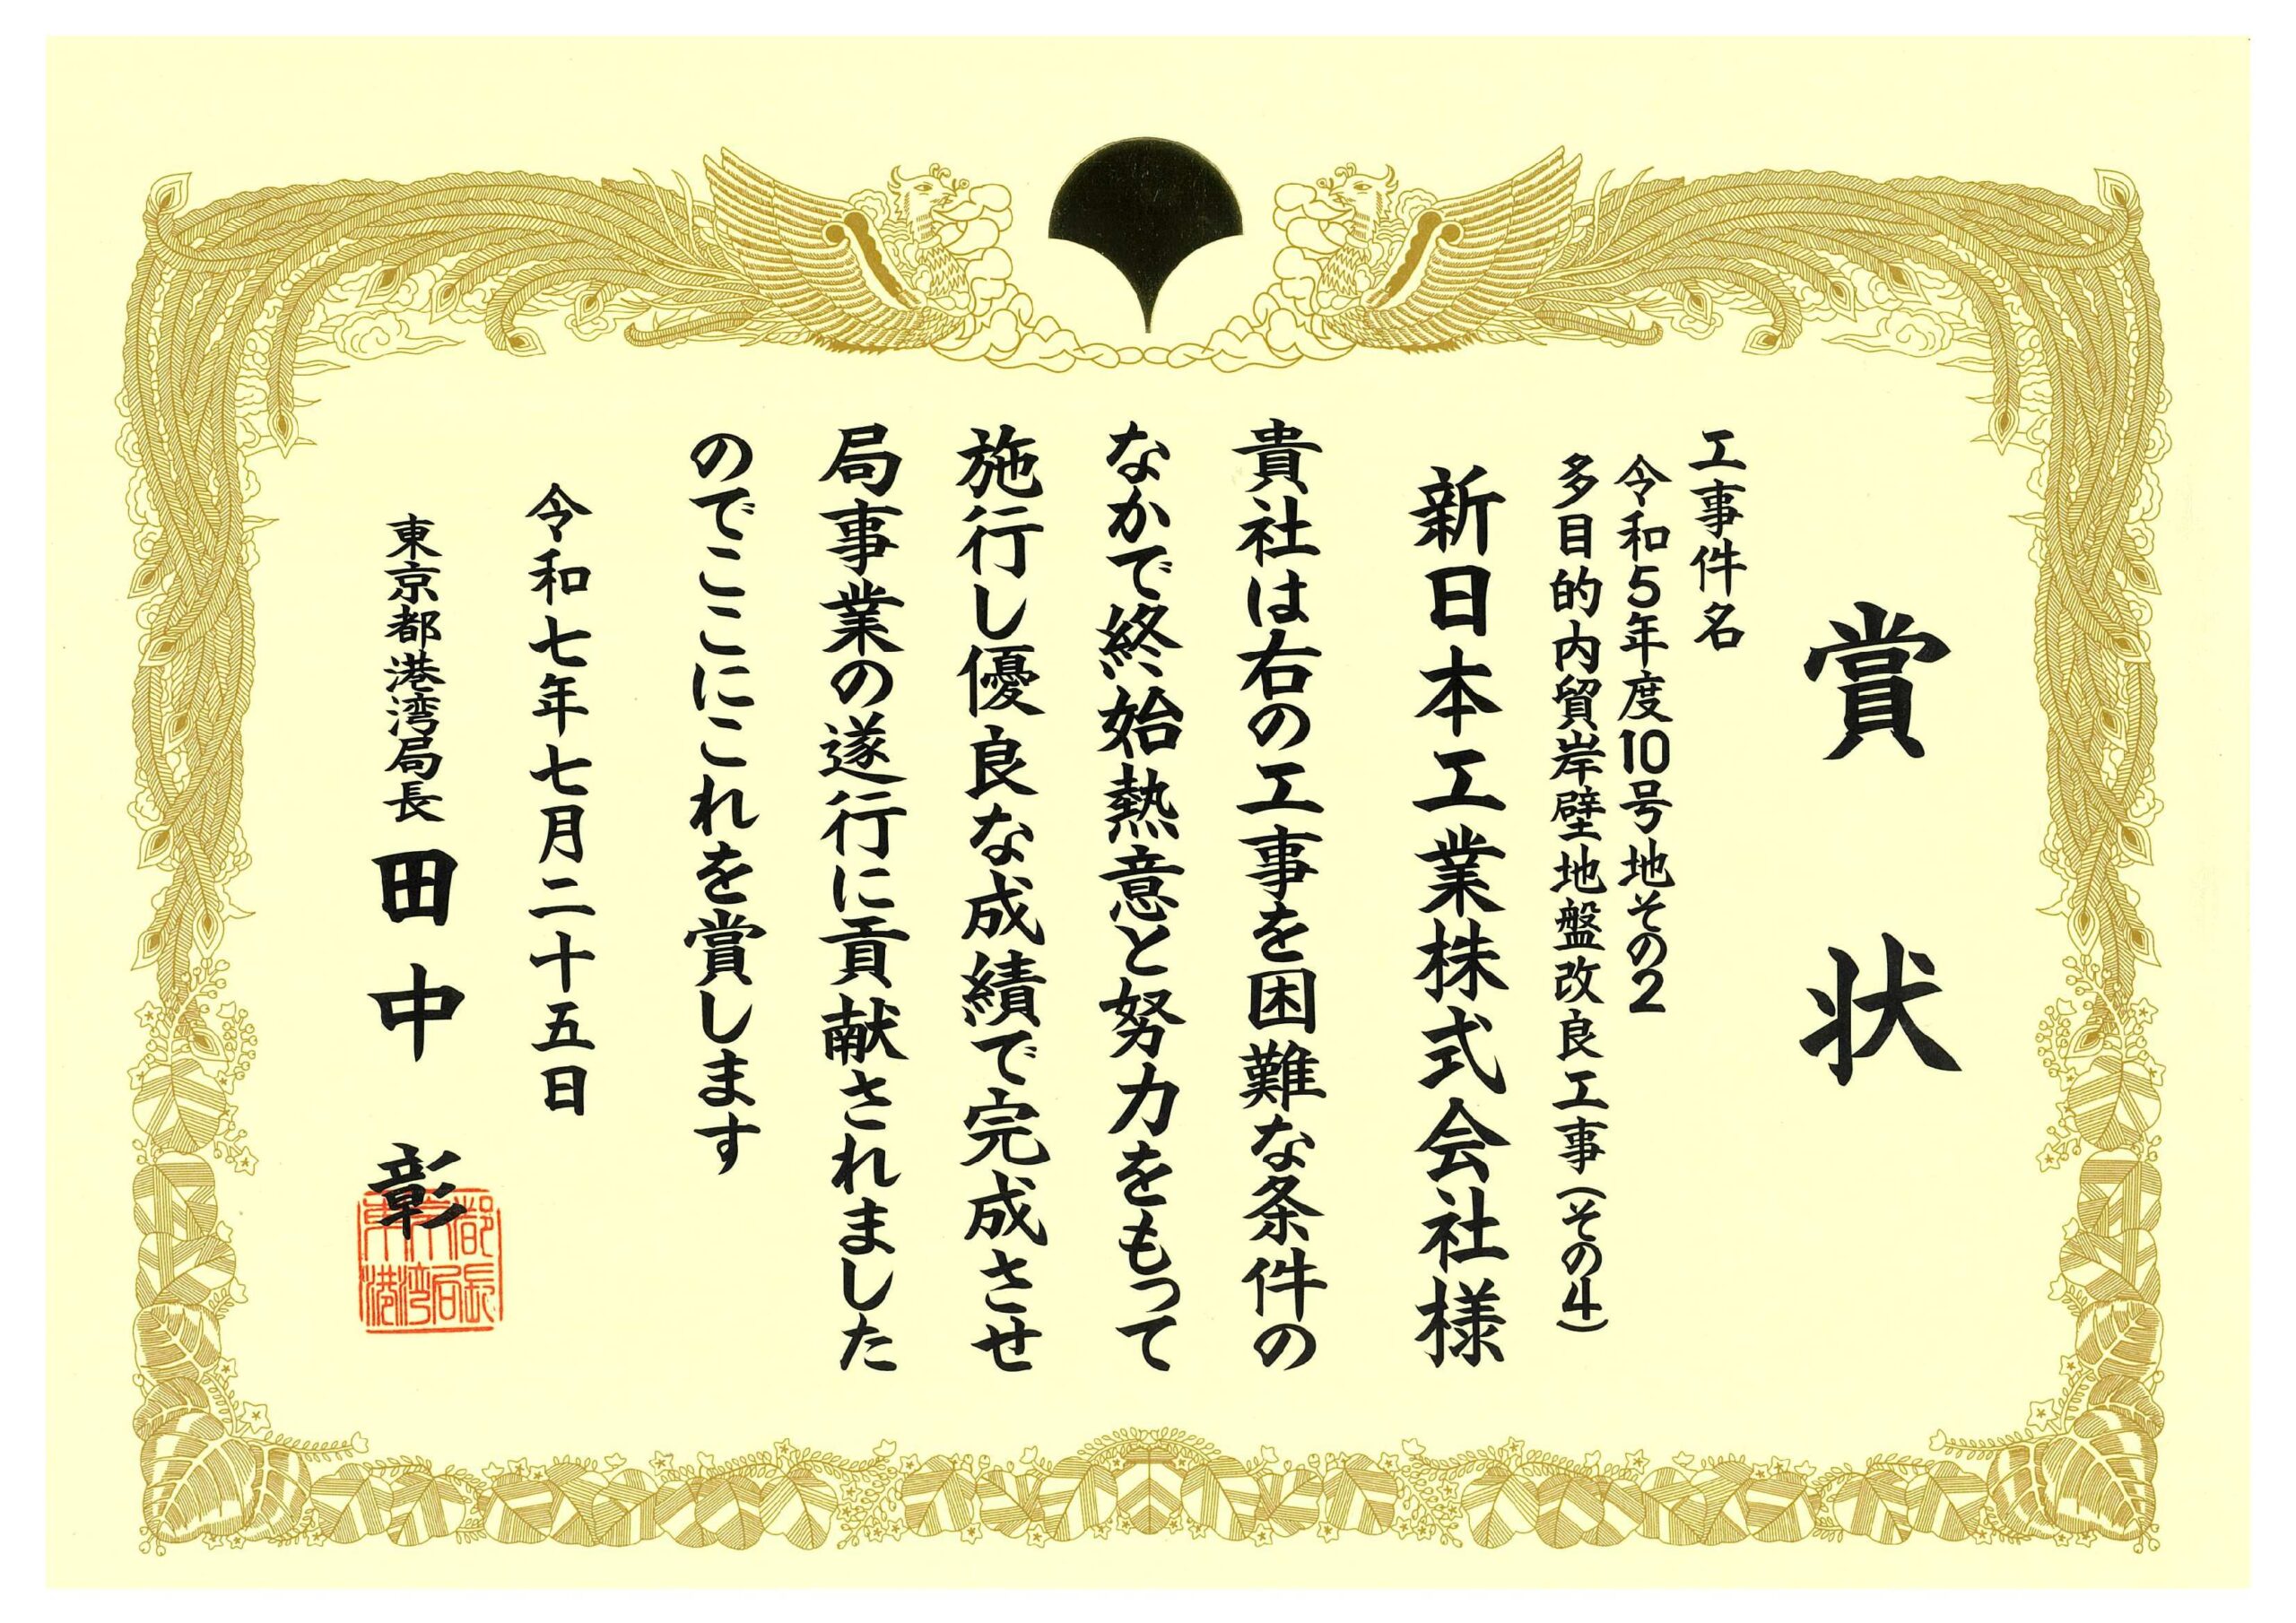 賞状
工事件名
令和5年度10号地その2
多目的内貿岸壁地盤改良工事(その4)
新日本工業株式会社様
貴社は右の工事を困難な条件の
なかで終始熱意と努力をもって
施行し優良な成績で完成させ
局事業の遂行に貢献されました
のでここにこれを賞します
令和七年七月二十五日
東京都港湾局長 田中 彰
東京都
港湾局長